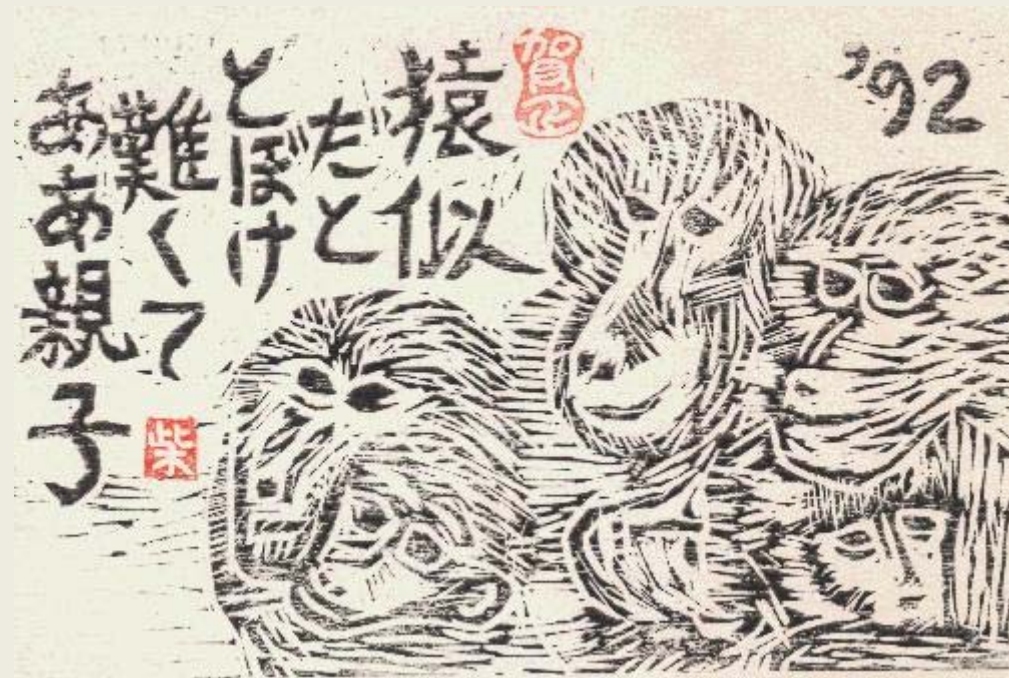 '92
賀正
猿似
たと
とぼけ
難くて
ああ親子
柴